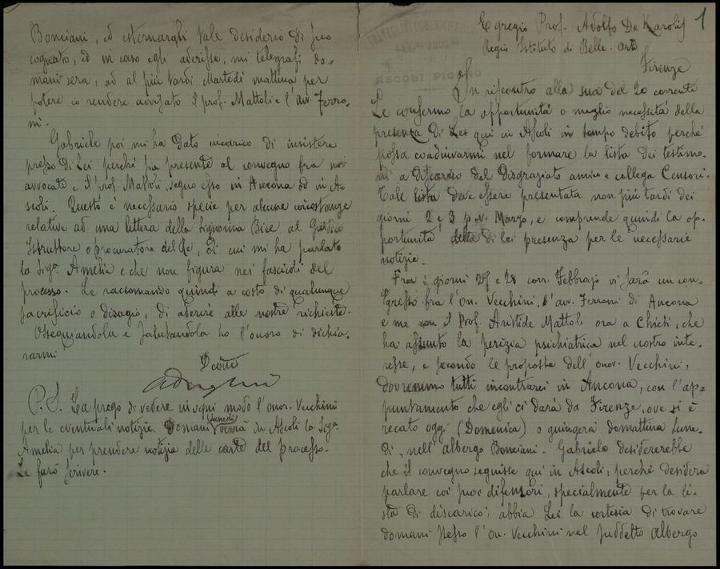 1
Egregio Prof. Adolfo De Karolis
Regio Istituto di Belle Arti
Firenze
ASCOLI PICENO
In riscontro alla sua del 20 corrente
Le confermo la opportunità o meglio necessità della
presenza di Lei qui in Ascoli in tempo debito perchè
possa coadiuvarmi nel formare la lista dei testimo-
ni a discarico del disgraziato amico e collega Censori.
Tale lista deve essere presentata non più tardi dei
giorni 2 e 3 p.v. Marzo, e comprende quindi la op-
portunità della di lei presenza per le necessarie
notizie.
Fra i giorni 27 e 28 corr. Febbrajo vi sarà un con-
gresso fra l'on. Vecchini, l'avv. Ferroni di Ancona
e me con il Prof. Aristide Mattoli ora a Chieti, che
ha assunto la perizia psichiatrica nel nostro inte-
resse, e secondo le proposte dell'onor. Vecchini,
dovremmo tutti incontrarci in Ancona, con l'ap-
puntamento che egli ci darà da Firenze, ove si è
recato oggi (Domenica) o giungerà domattina lune-
di, nell'albergo Bonciani. Gabriele desidererebbe
che il convegno seguisse qui in Ascoli, perchè desidera
parlare coi suoi difensori, specialmente per la li-
sta di discarico; abbia Lei la cortesia di trovare
domani stesso l'on. Vecchini nel suddetto albergo
Bonciani, ed esternarghi tale desiderio di suo
cognato, ed in caso egli aderisse, mi telegrafi do-
mani sera, od al più tardi Martedi mattina per
potere io rendere avvisato il prof. Mattoli e l'avv. Ferro-
ni.
Gabriele poi mi ha dato incarico di insistere
presso di Lei perchè sia presente al convegno fra noi
avvocati e il prof. Mattoli, segua esso in Ancona od in As-
coli. Questo è necessario specie per alcune circostanze
relative ad una lettera della Signorina Bice al Giudice
Istruttore o procuratore del Re, di cui mi ha parlato
la Sig.a Amelia e che non figura nei fascicoli del
processo. Le raccomando quindi a costo di qualunque
sacrificio o disagio, di aderire alle nostre richieste.
Ossequiandola e salutandola ho l'onore di dichia-
rarmi
P. S. La prego di vedere in ogni modo l'onor. Vecchini
per le eventuali notizie. Domani (lunedi) verrà in Ascoli la Sig.a
Amelia per prendere notizia delle carte del processo.
Le farò scrivere.